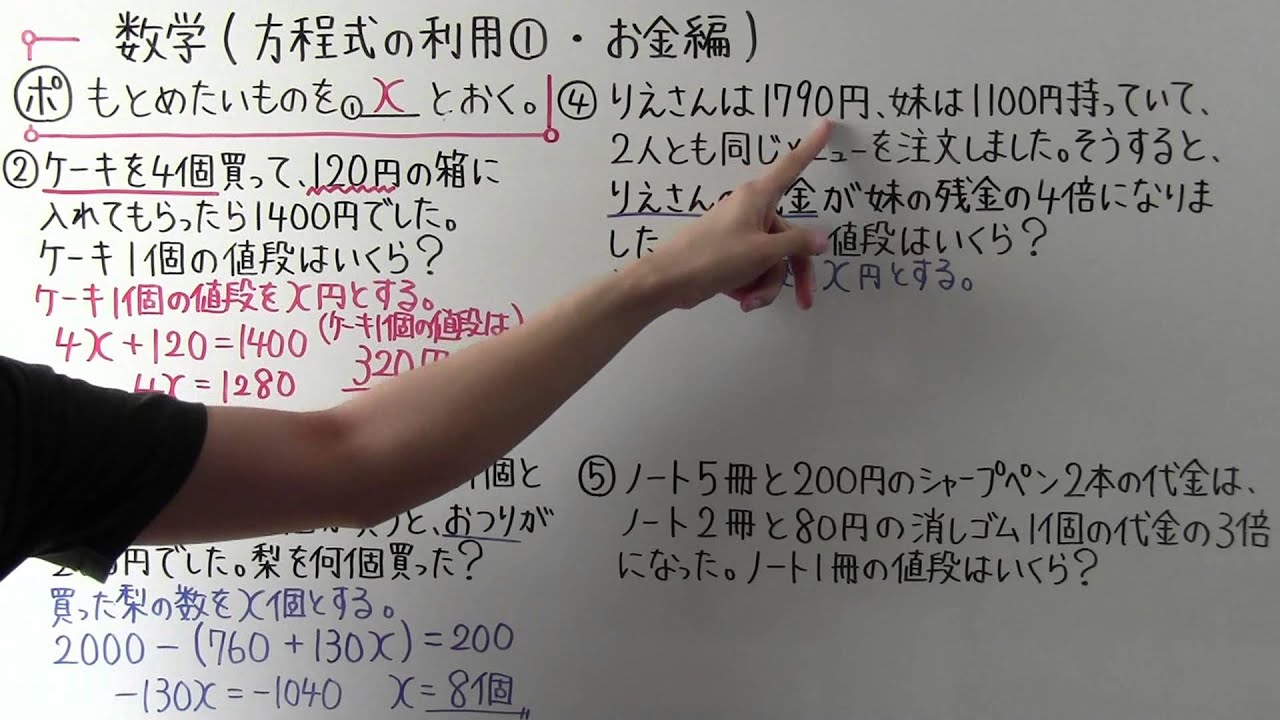 数学(方程式の利用①・お金編)
ポ もとめたいものを① x とおく。
② ケーキを4個買って、120円の箱に
入れてもらったら1400円でした。
ケーキ1個の値段はいくら?
ケーキ1個の値段をx円とする。
4x+120=1400 (ケーキ1個の値段は)
4x=1280 320円
個と
と、おつりが
円でした。梨を何個買った?
買った梨の数をx個とする。
2000-(760+130x)=200
-130x=-1040 x=8個
④ りえさんは1790円、妹は1100円持っていて、
2人とも同じメニューを注文しました。そうすると、
りえさんの 金が妹の残金の4倍になりま
した 値段はいくら?
x円とする。
⑤ ノート5冊と200円のシャープペン2本の代金は、
ノート2冊と80円の消しゴム1個の代金の3倍
になった。ノート1冊の値段はいくら?